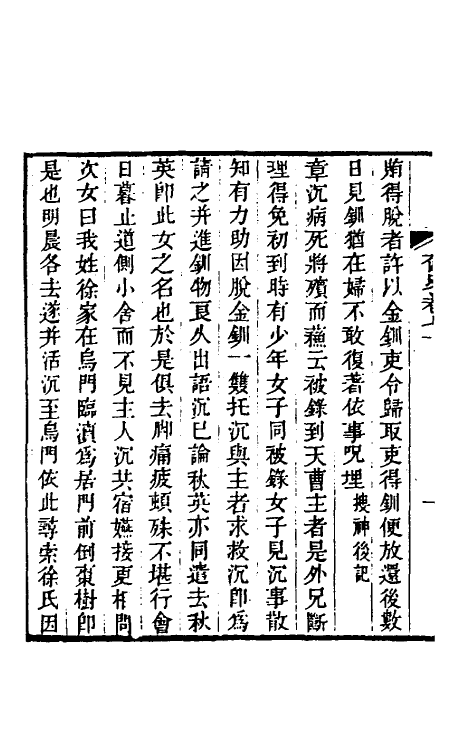 賄得脫者許以金釧吏令歸取吏得釧便放還後數
日見釧猶在婦不敢復著依事呪埋 搜神後記
章沉病死將殯而蘇云被錄到天曹主者是外兄斷
理得免初到時有少年女子同被錄女子見沉事散
知有力助因脫金釧一雙托沉與主者求救沉卽爲
請之幷進釧物良久出語沉已論秋英亦同遣去秋
英卽此女之名也於是俱去脚痛疲頓殊不堪行會
日暮止道側小舍而不見主人沉共宿嬿接更相問
次女曰我姓徐家在烏門臨瀆爲居門前倒棗樹卽
是也明晨各去遂幷活沉至烏門依此尋索徐氏因